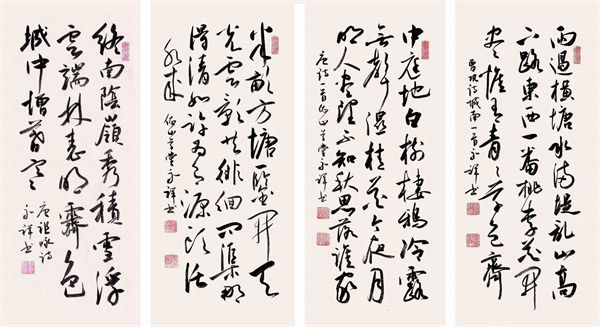 雨過橫塘水滿堤亂山高
下路東西一番桃李花開
盡惟有青青草色齊
曾鞏詩城南一首永祥書
中庭地白樹棲鴉冷露
無聲濕桂花今夜月
明人盡望不知秋思落誰家
唐詩一首仰山草堂永祥書
半畝方塘一鑒開天
光雲影共徘徊問渠那
得清如許為有源頭活
水來 仰山草堂永祥書
終南陰嶺秀積雪浮
雲端林表明霽色
城中增暮寒
唐祖詠詩
永祥書